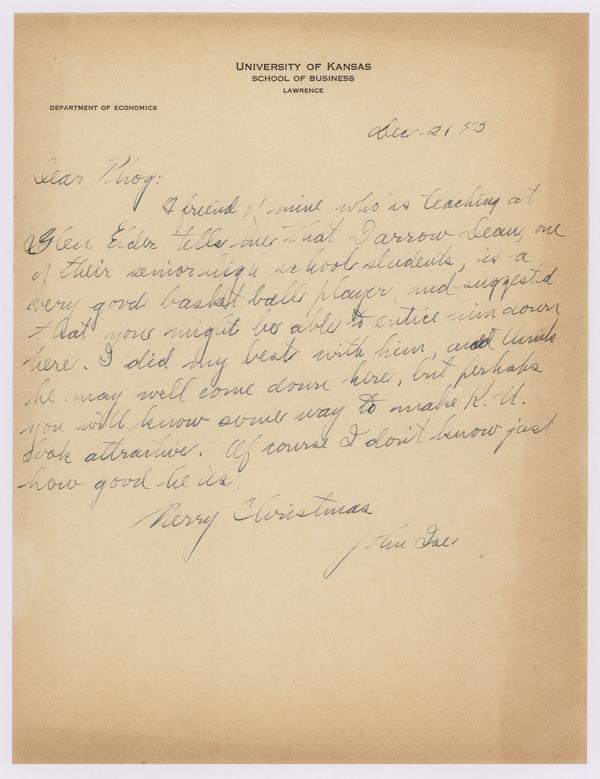 UNIVERSITY OF KANSAS
SCHOOL OF BUSINESS
LAWRENCE
DEPARTMENT OF ECONOMICS
Dec. 21
Dear Phog:
A friend of mine who is teaching at
Glen Elder tells me that Darrow Dean, one
of their senior high school students, is a
very good basket ball player, and suggested
that you might be able to entice him down
here. I did my best with him, and think
he may well come down here, but perhaps
you will know some way to make K. U.
look attractive. Of course I don't know just
how good he is.
Merry Christmas
John Ise